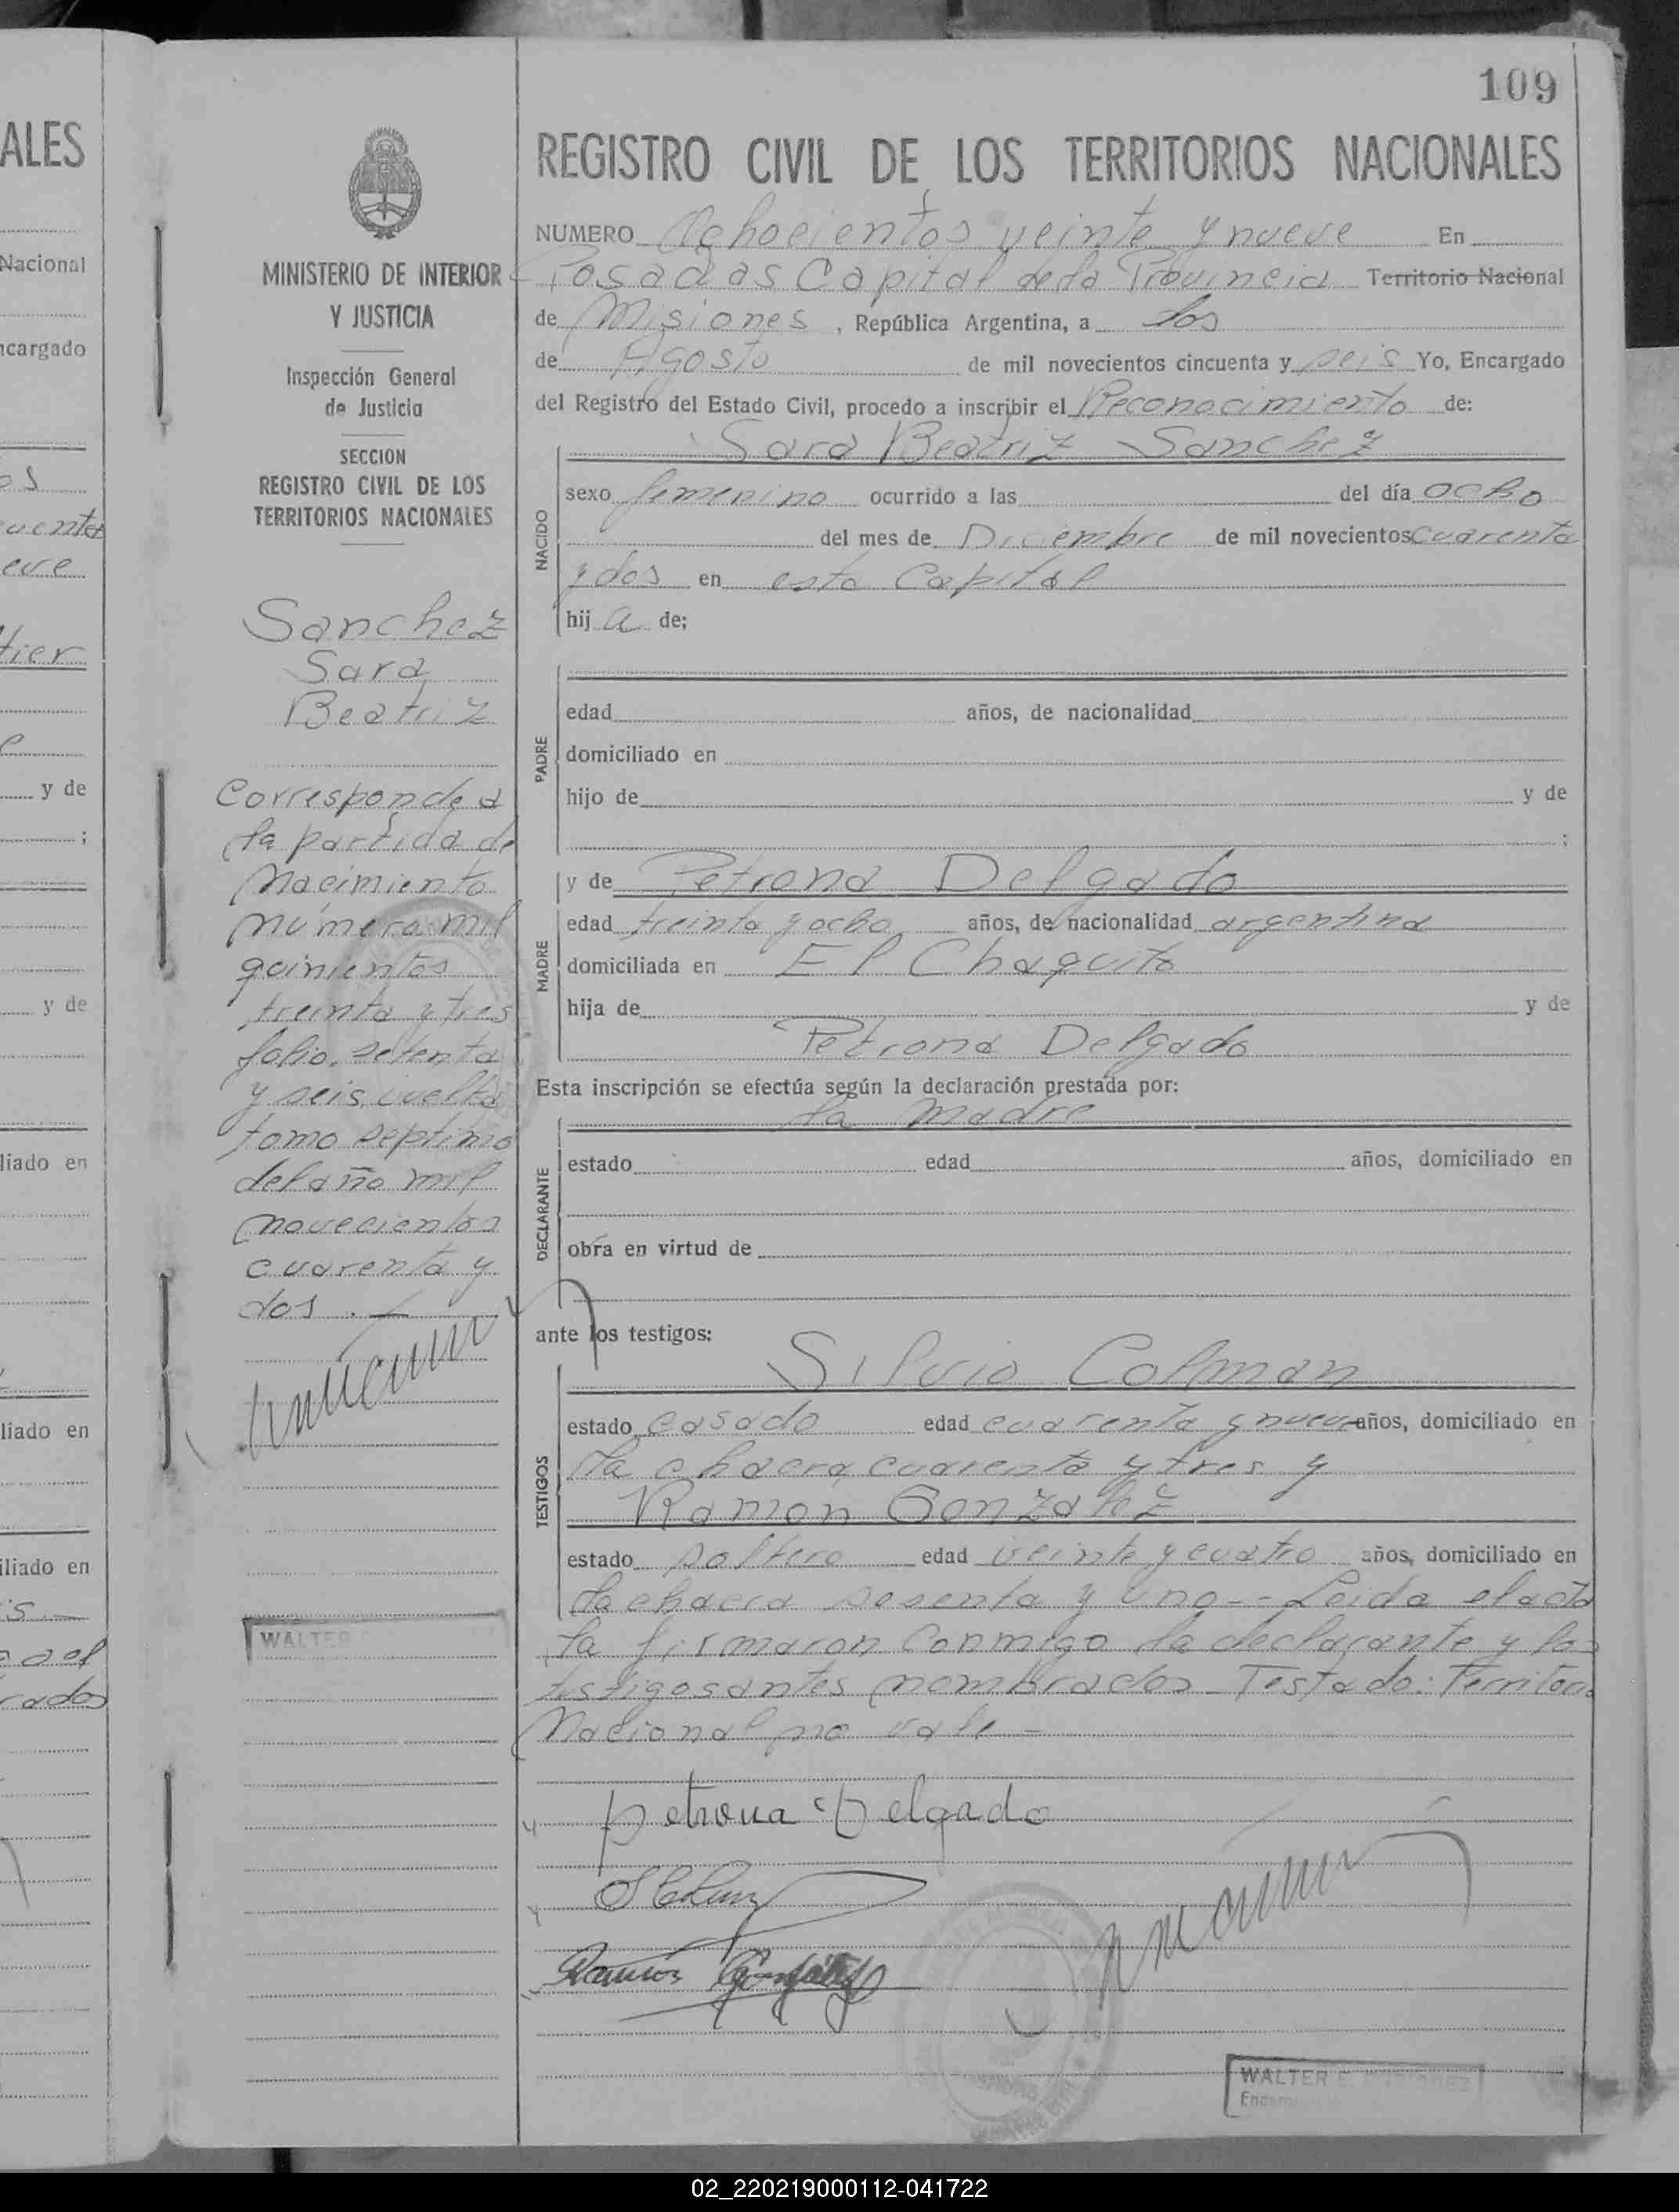 109
ALES
Nacional
ncargado
os
cuenta
eve
tier
e
y de
;
y de
liado en
liado en
iliado en
is —
o a el
rados
MINISTERIO DE INTERIOR
Y JUSTICIA
Inspección General
de Justicia
SECCION
REGISTRO CIVIL DE LOS
TERRITORIOS NACIONALES
Sanchez
Sara
Beatriz
Corresponde a
la partida de
Nacimiento
número mil
quinientos
treinta y tres
folio setenta
y seis vuelta
tomo septimo
del año mil
novecientos
cuarenta y
dos . —
WALTER
REGISTRO CIVIL DE LOS TERRITORIOS NACIONALES
NUMERO Ochocientos veinte y nueve En
Posadas Capital de la Provincia Territorio Nacional
de Misiones , República Argentina, a dos
de Agosto de mil novecientos cincuenta y seis Yo, Encargado
del Registro del Estado Civil, procedo a inscribir el Reconocimiento de:
Sara Beatriz Sanchez
NACIDO
sexo femenino ocurrido a las del día ocho
del mes de Diciembre de mil novecientos cuarenta
y dos en esta Capital
hij a de;
PADRE
edad años, de nacionalidad
domiciliado en
hijo de y de
;
MADRE
y de Petrona Delgado
edad treinta y ocho años, de nacionalidad argentina
domiciliada en El Chaquito
hija de y de
Petrona Delgado
Esta inscripción se efectúa según la declaración prestada por:
la madre
DECLARANTE
estado edad años, domiciliado en
obra en virtud de
ante los testigos:
TESTIGOS
Silvio Colman
estado casado edad cuarenta y nueve años, domiciliado en
la chacra cuarenta y tres y
Ramon Gonzalez
estado soltero edad veinte y cuatro años, domiciliado en
la chacra sesenta y uno -- Leida el acta
la firmaron conmigo la declarante y los
testigos antes nombrados - Testado: Territorio
Nacional no vale -
Petrona Delgado
Ramón González
WALTER E.